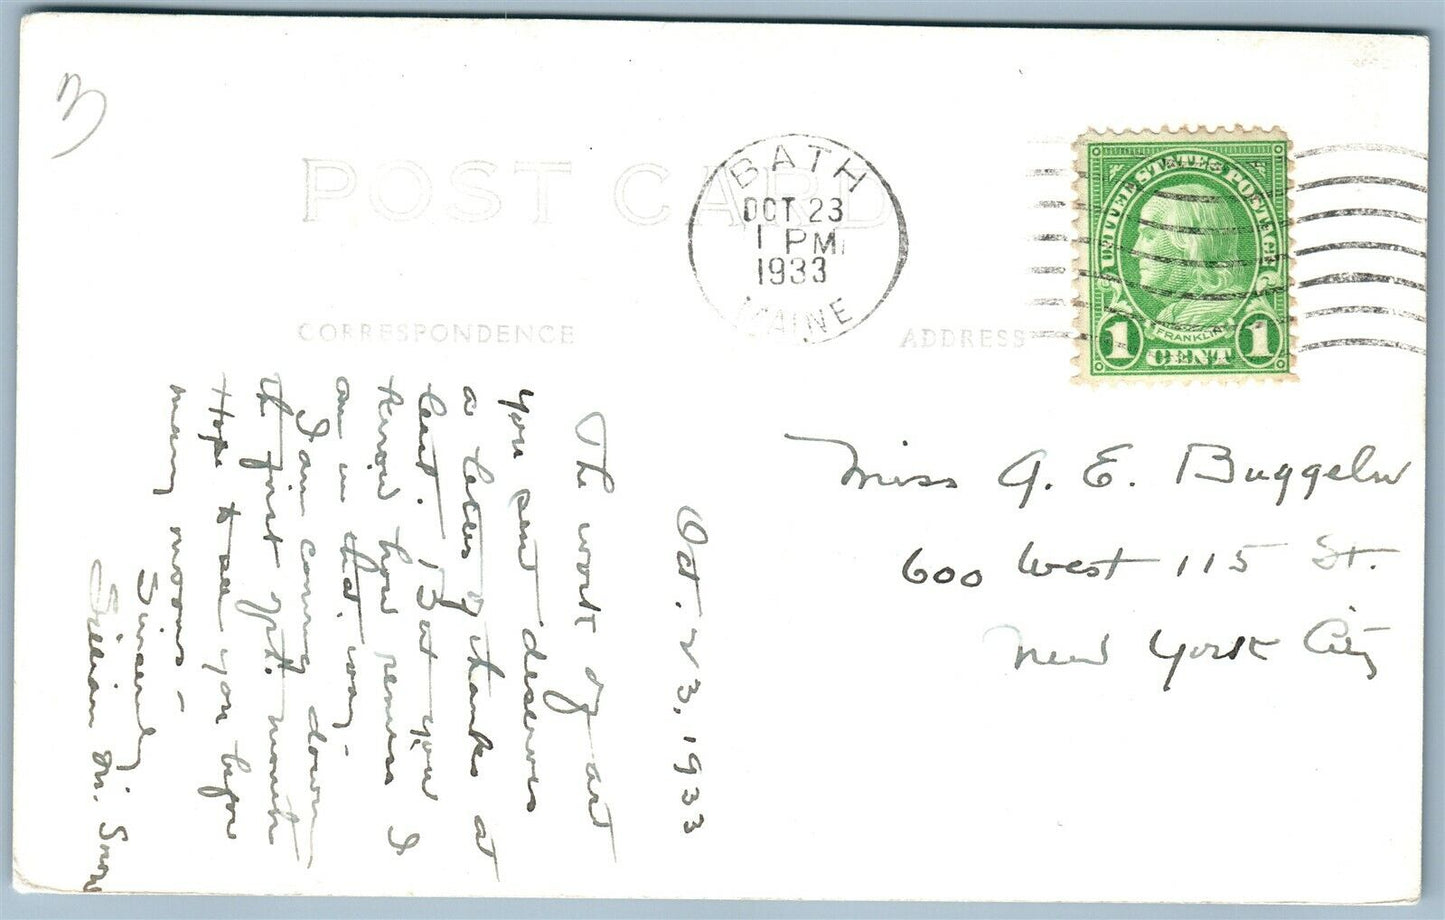 3
POST CARD
CORRESPONDENCE
ADDRESS
BATH
OCT 23
1 PM
1933
MAINE
UNITED STATES POSTAGE
FRANKLIN
1 CENT 1
Miss A. E. Buggeln
600 West 115 St.
New York City
Oct. 23, 1933
The work of art
you sent deserves
a letter of thanks at
least. But you
know how remiss I
am in that way -
I am coming down
the first of month
Hope to see you before
many moons -
Sincerely,
Lillian M. Snow